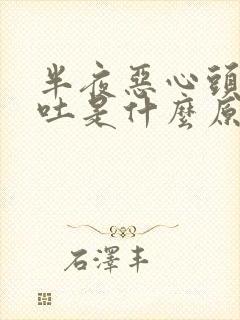 半夜惡心頭
吐是什麼原
石澤丰